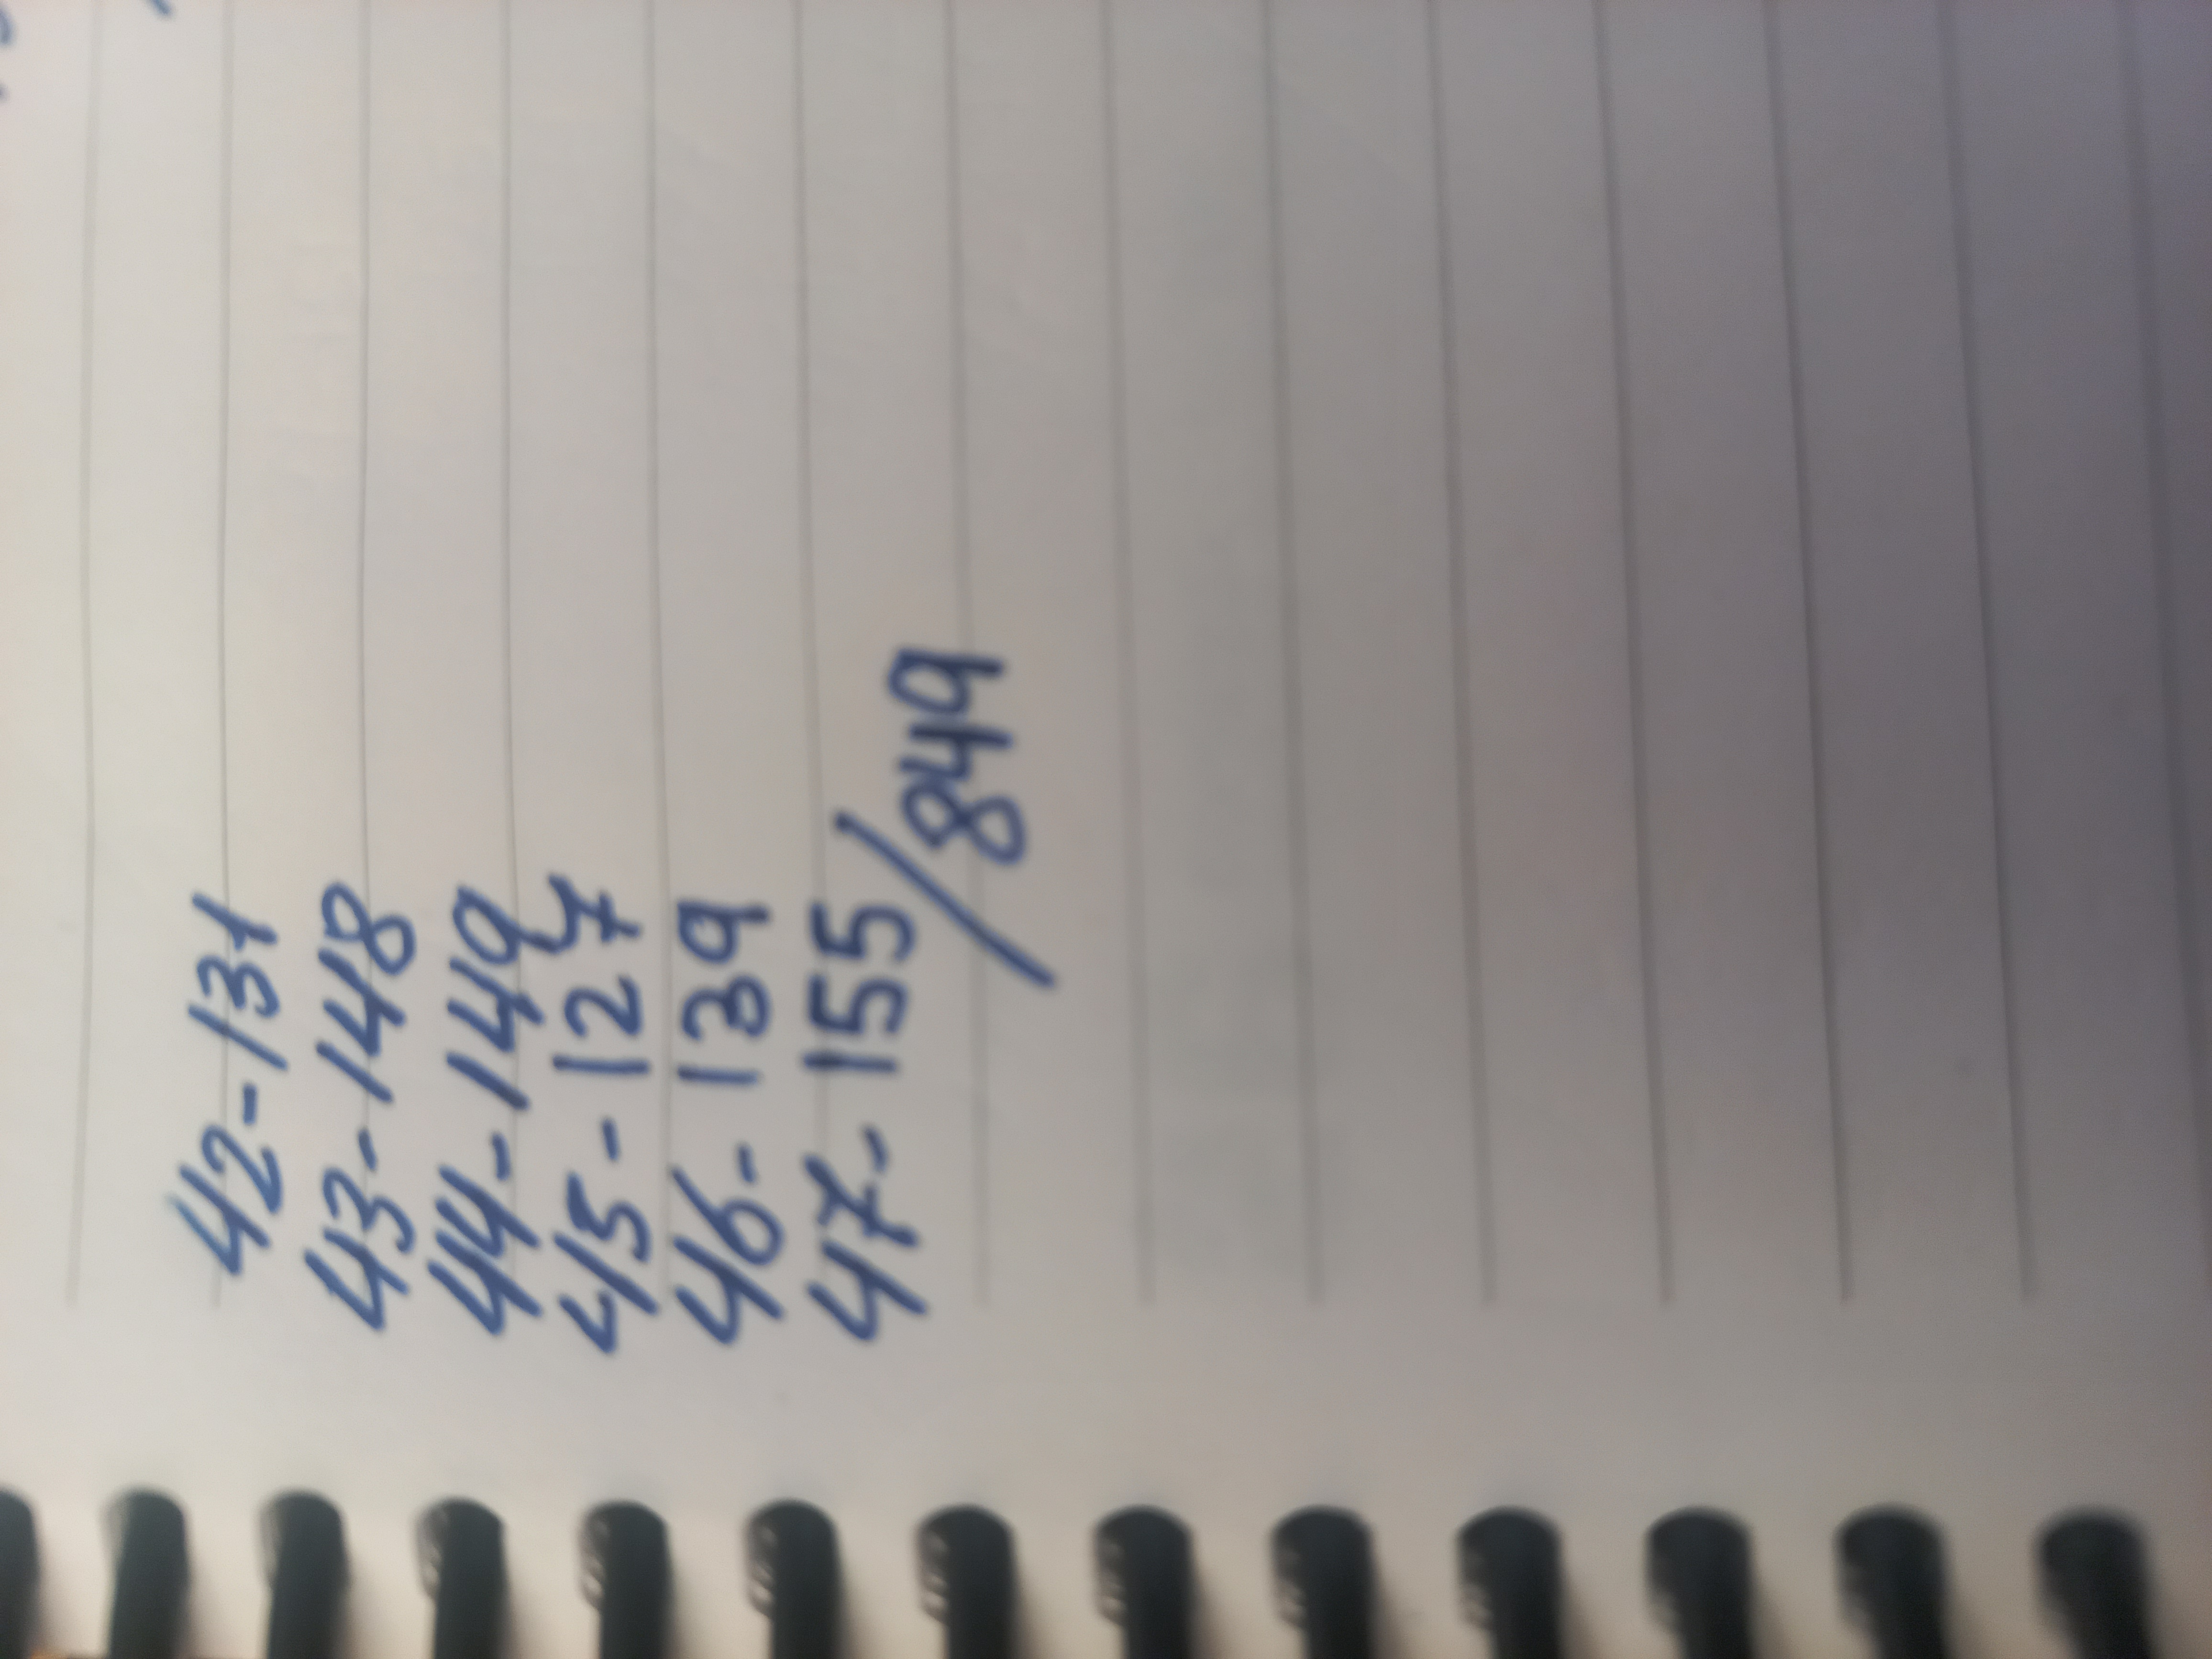 42-131
43-148
44-149
45-127
46-139
47-155/849